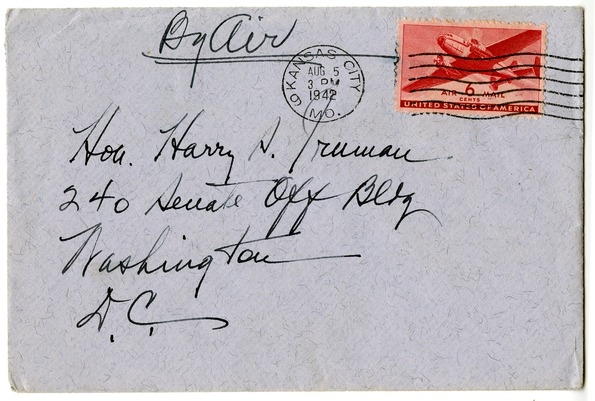 By Air
KANSAS CITY
AUG 5
3 PM
1942
MO.
6
CENTS
AIR MAIL
UNITED STATES OF AMERICA
Hon. Harry S. Truman
240 Senate Off Bldg
Washington
D.C.